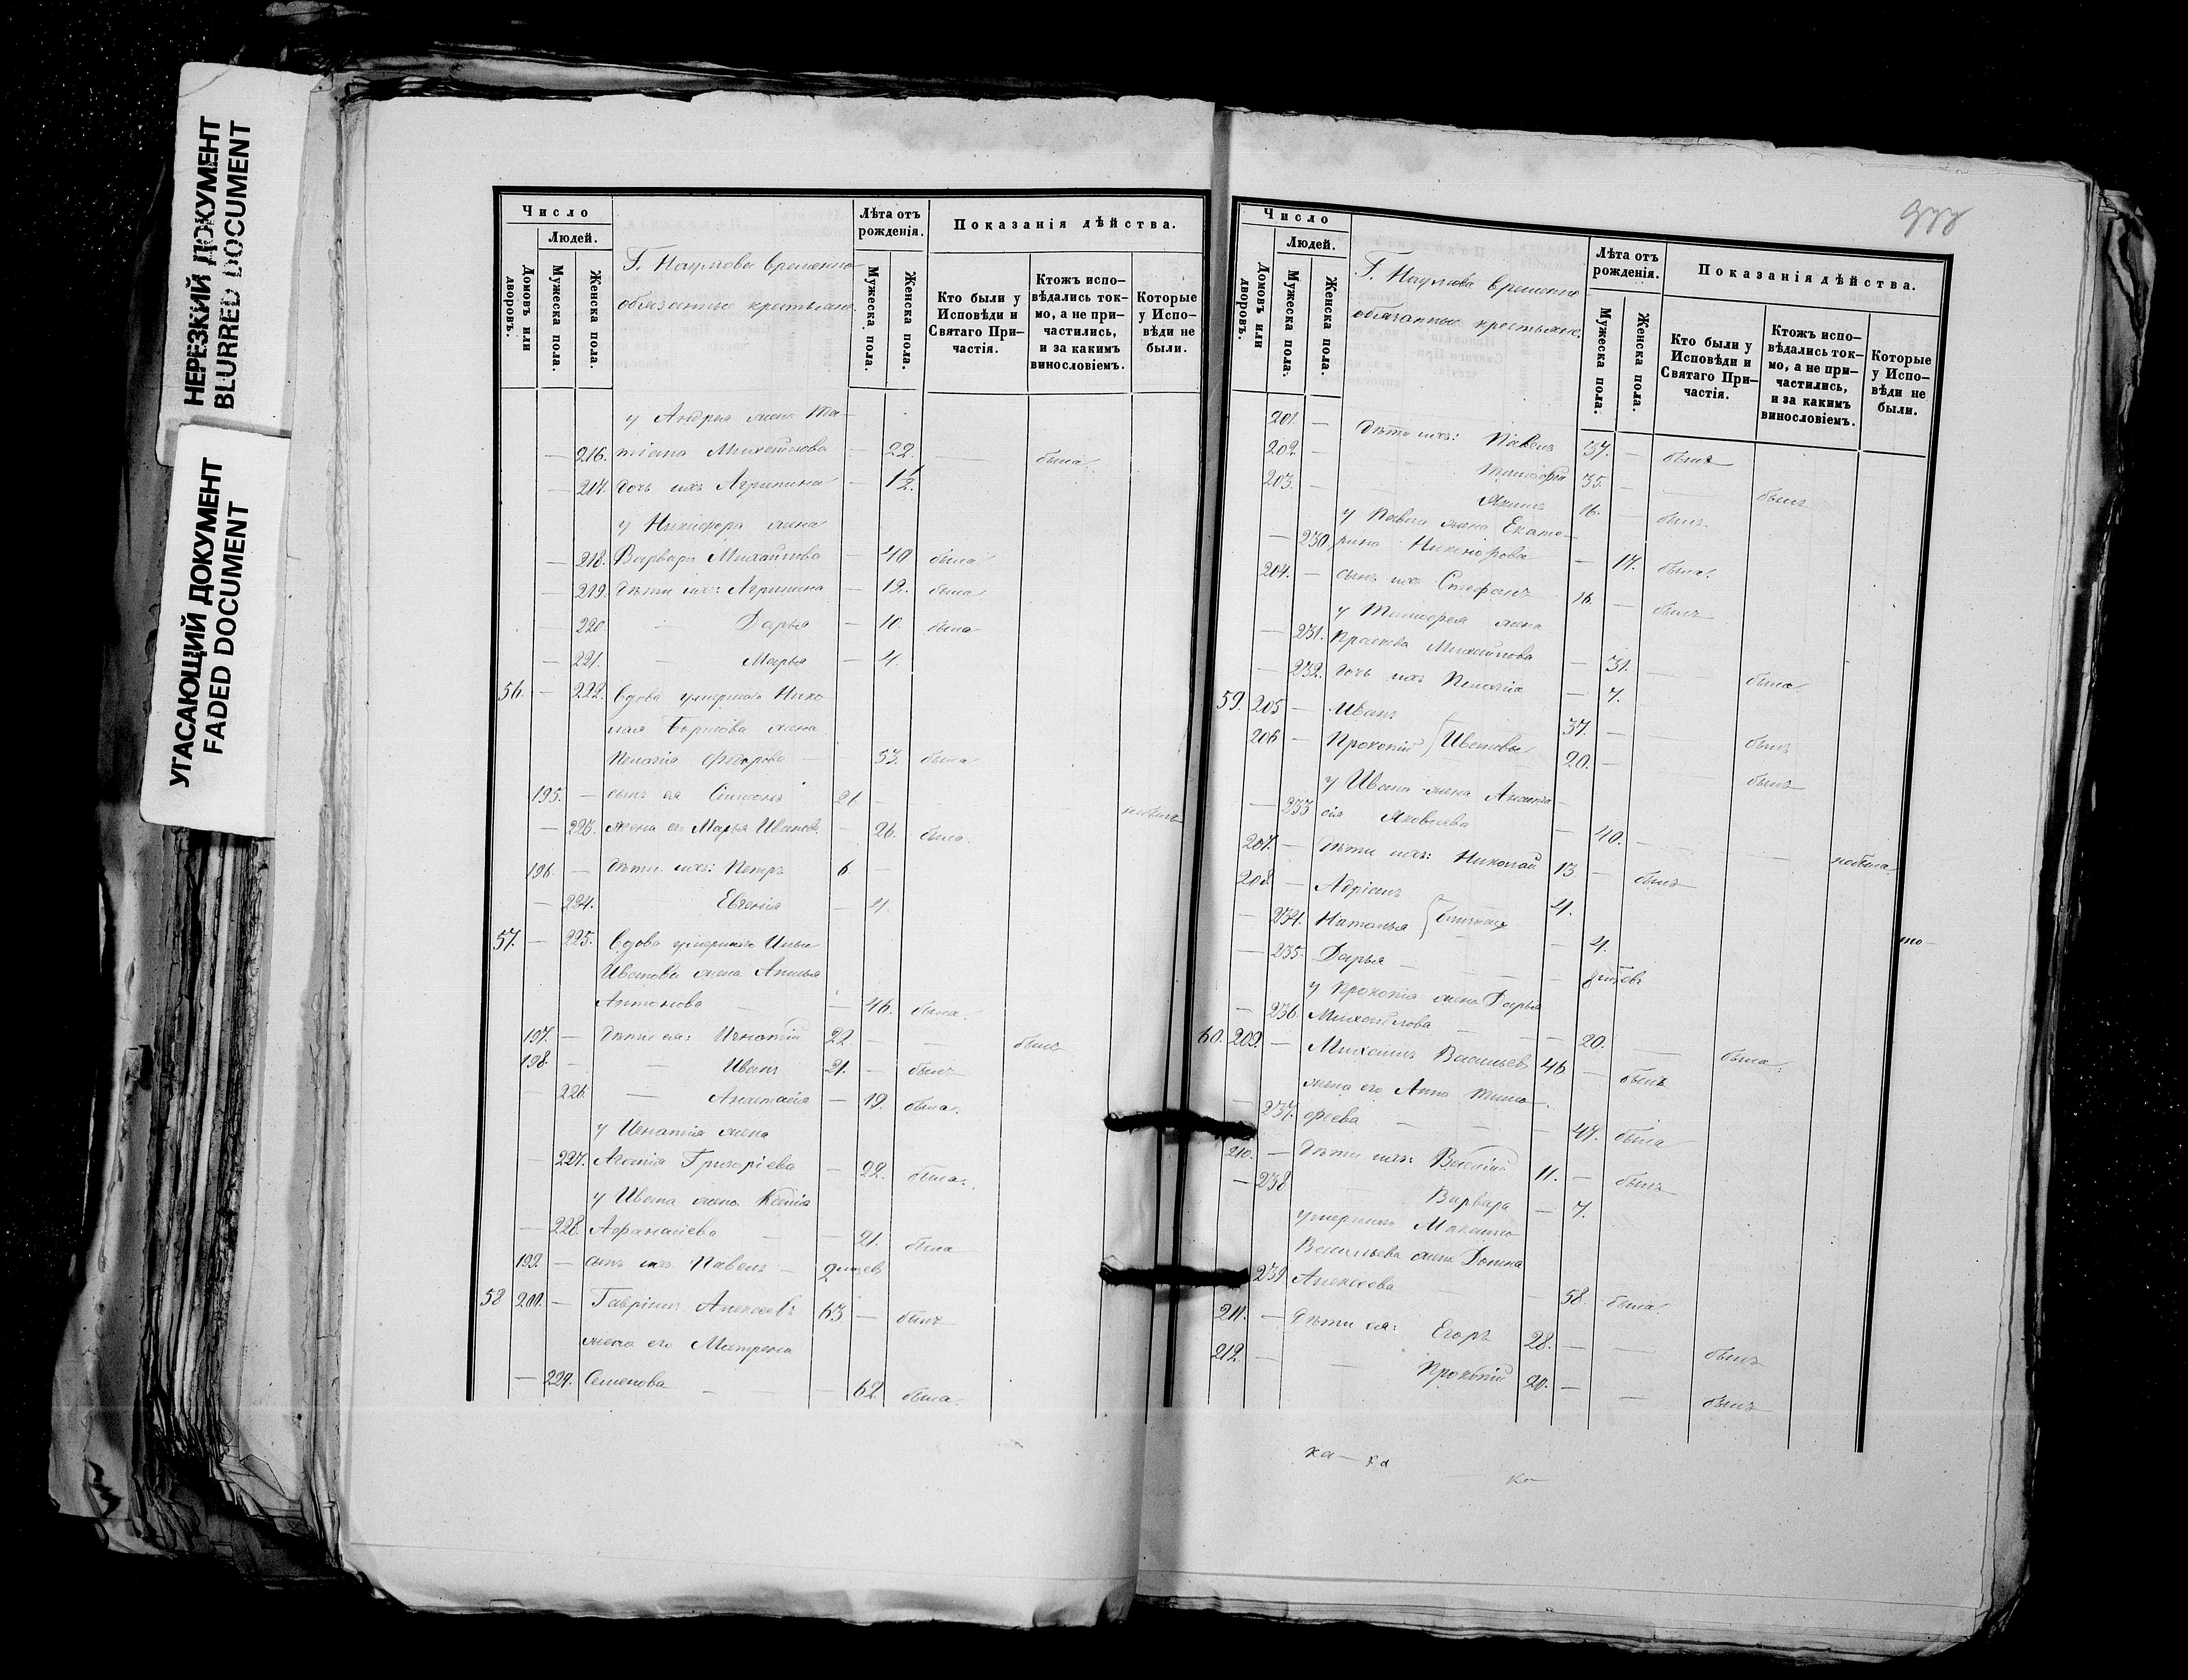 НЕРЕЗКИЙ ДОКУМЕНТ
BLURRED DOCUMENT
УГАСАЮЩИЙ ДОКУМЕНТ
FADED DOCUMENT
Число
Людей.
Домовъ или дворовъ.
Мужеска пола.
Женска пола.
Г. Наумова временно
обязанные крестьяне.
Лѣта отъ рожденія.
Мужеска пола.
Женска пола.
Показанія дѣйства.
Кто были у Исповѣди и Святаго При-частія.
Ктожъ испо-вѣдались ток-мо, а не при-частились, и за какимъ винословіемъ.
Которые у Испо-вѣди не были.
у Андрея жена Та-
— 216. тіана Михайлова — 22. — была.
— 217. дочь ихъ Агрипина — 1/2.
у Никифора жена
— 218. Варвара Михайлова — 40 была
— 219. дѣти ихъ: Агрипина — 12. была
— 220. — Дарья — 10. была
— 221. — Марья — 4.
56. — 222. Вдова умершаго Нико
лая Борисова жена
Пелагія Федорова — 53. была
195. — сынъ ея Симонъ 26 — небылъ
— 223. жена его Марья Иванов. — 26. была.
196. — дѣти ихъ: Петръ 6. —
— 224. Евгенія — 4.
57. — 225. Вдова умершаго Ильи
Иванова жена
Антонова — — 46. была.
197. — дѣти ея: Игнатій 22 — — былъ
198. — — Иванъ 21. — былъ
— 226. — Анастасія — 19. была.
у Игнатія жена
— 227. Агапія Григоріева — 22. была.
у Ивана жена Ксенія
— 228. Афанасіева — — 21. была
199. — сынъ ихъ Павелъ — 2 мѣсяцев
58 200. — Гавріилъ Алексѣевъ 63. — былъ
жена его Матрена
— 229. Семенова — — 62. была.
Число
Людей.
Домовъ или дворовъ.
Мужеска пола.
Женска пола.
Г. Наумова временно
обязанные крестьяне.
Лѣта отъ рожденія.
Мужеска пола.
Женска пола.
Показанія дѣйства.
Кто были у Исповѣди и Святаго При-частія.
Ктожъ испо-вѣдались ток-мо, а не при-частились, и за какимъ винословіемъ.
Которые у Испо-вѣди не были.
201. — Дѣти ихъ: Павелъ 37. — былъ
202. — Тимофей 35. — — былъ
203. — Якимъ 16. — былъ.
у Павла жена Екате-
— 230. рина Никанорова — 17. была.
204. — сынъ ихъ Стефанъ 16. — былъ
у Тимофея жена
— 231. Прасковa Михайлова — 31. — была
— 232. дочь ихъ Пелагія — 7.
59. 205 — Иванъ 37. — — былъ
206 — Прокопій Ивановы 20. — — былъ
у Ивана жена Анаста
— 233 сія Яковлева — 40. — — небыла
207. — дѣти ихъ: Николай 13 — былъ
208. — Адріанъ 4.
— 234. Наталья близнецы — 4.
— 235. Дарья — —
у Прокопія жена Дарья
— 236. Михайлова — — 20. — была.
60. 209. — Михаилъ Васильевъ 46 — былъ
жена его Анна Тимо-
— 237. фѣева — — — 47. была
210. — Дѣти ихъ: Василій 11. — былъ
— 238 — Варвара — 7.
умершаго Максима
Васильева жена Домна
239 Алексѣева — — 58. была.
211. — Дѣти ея: Егоръ 28. — — былъ
212. — — Прокопій 20. — — былъ
ха—